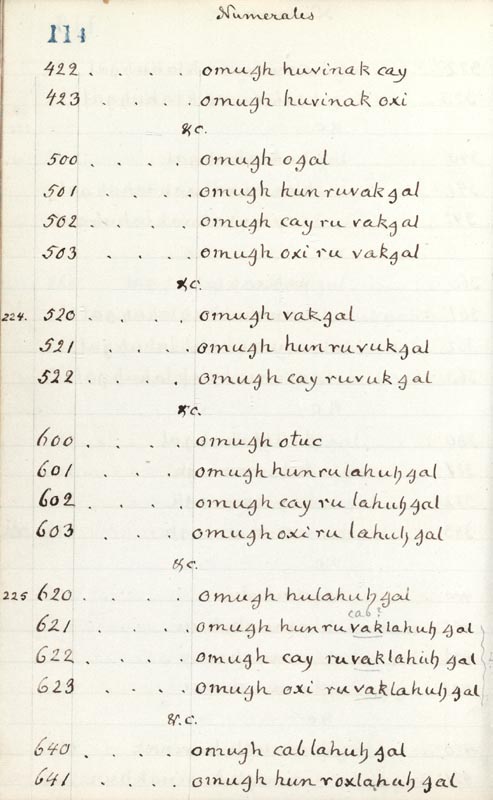 Numerales
114
422 . . . . omugh huvinak cay
423 . . . . omugh huvinak oxi
&c.
500 . . . . omugh ogal
501 . . . . omugh hun ruvakgal
502 . . . . omugh cay ru vakgal
503 . . . . omugh oxi ru vakgal
&c.
224. 520 . . . . omugh vakgal
521 . . . . omugh hun ruvukgal
522 . . . . omugh cay ruvukgal
&c.
600 . . . . omugh otuc
601 . . . . omugh hun rulahuh gal
602 . . . . omugh cay ru lahuh gal
603 . . . . omugh oxi ru lahuh gal
&c.
225 620 . . . . omugh hulahuh gal
cab?
621 . . . . omugh hun ruvaklahuh gal
622 . . . . omugh cay ruvaklahuh gal
623 . . . . omugh oxi ruvaklahuh gal
&c.
640 . . . . omugh cablahuh gal
641 . . . . omugh hun roxlahuh gal